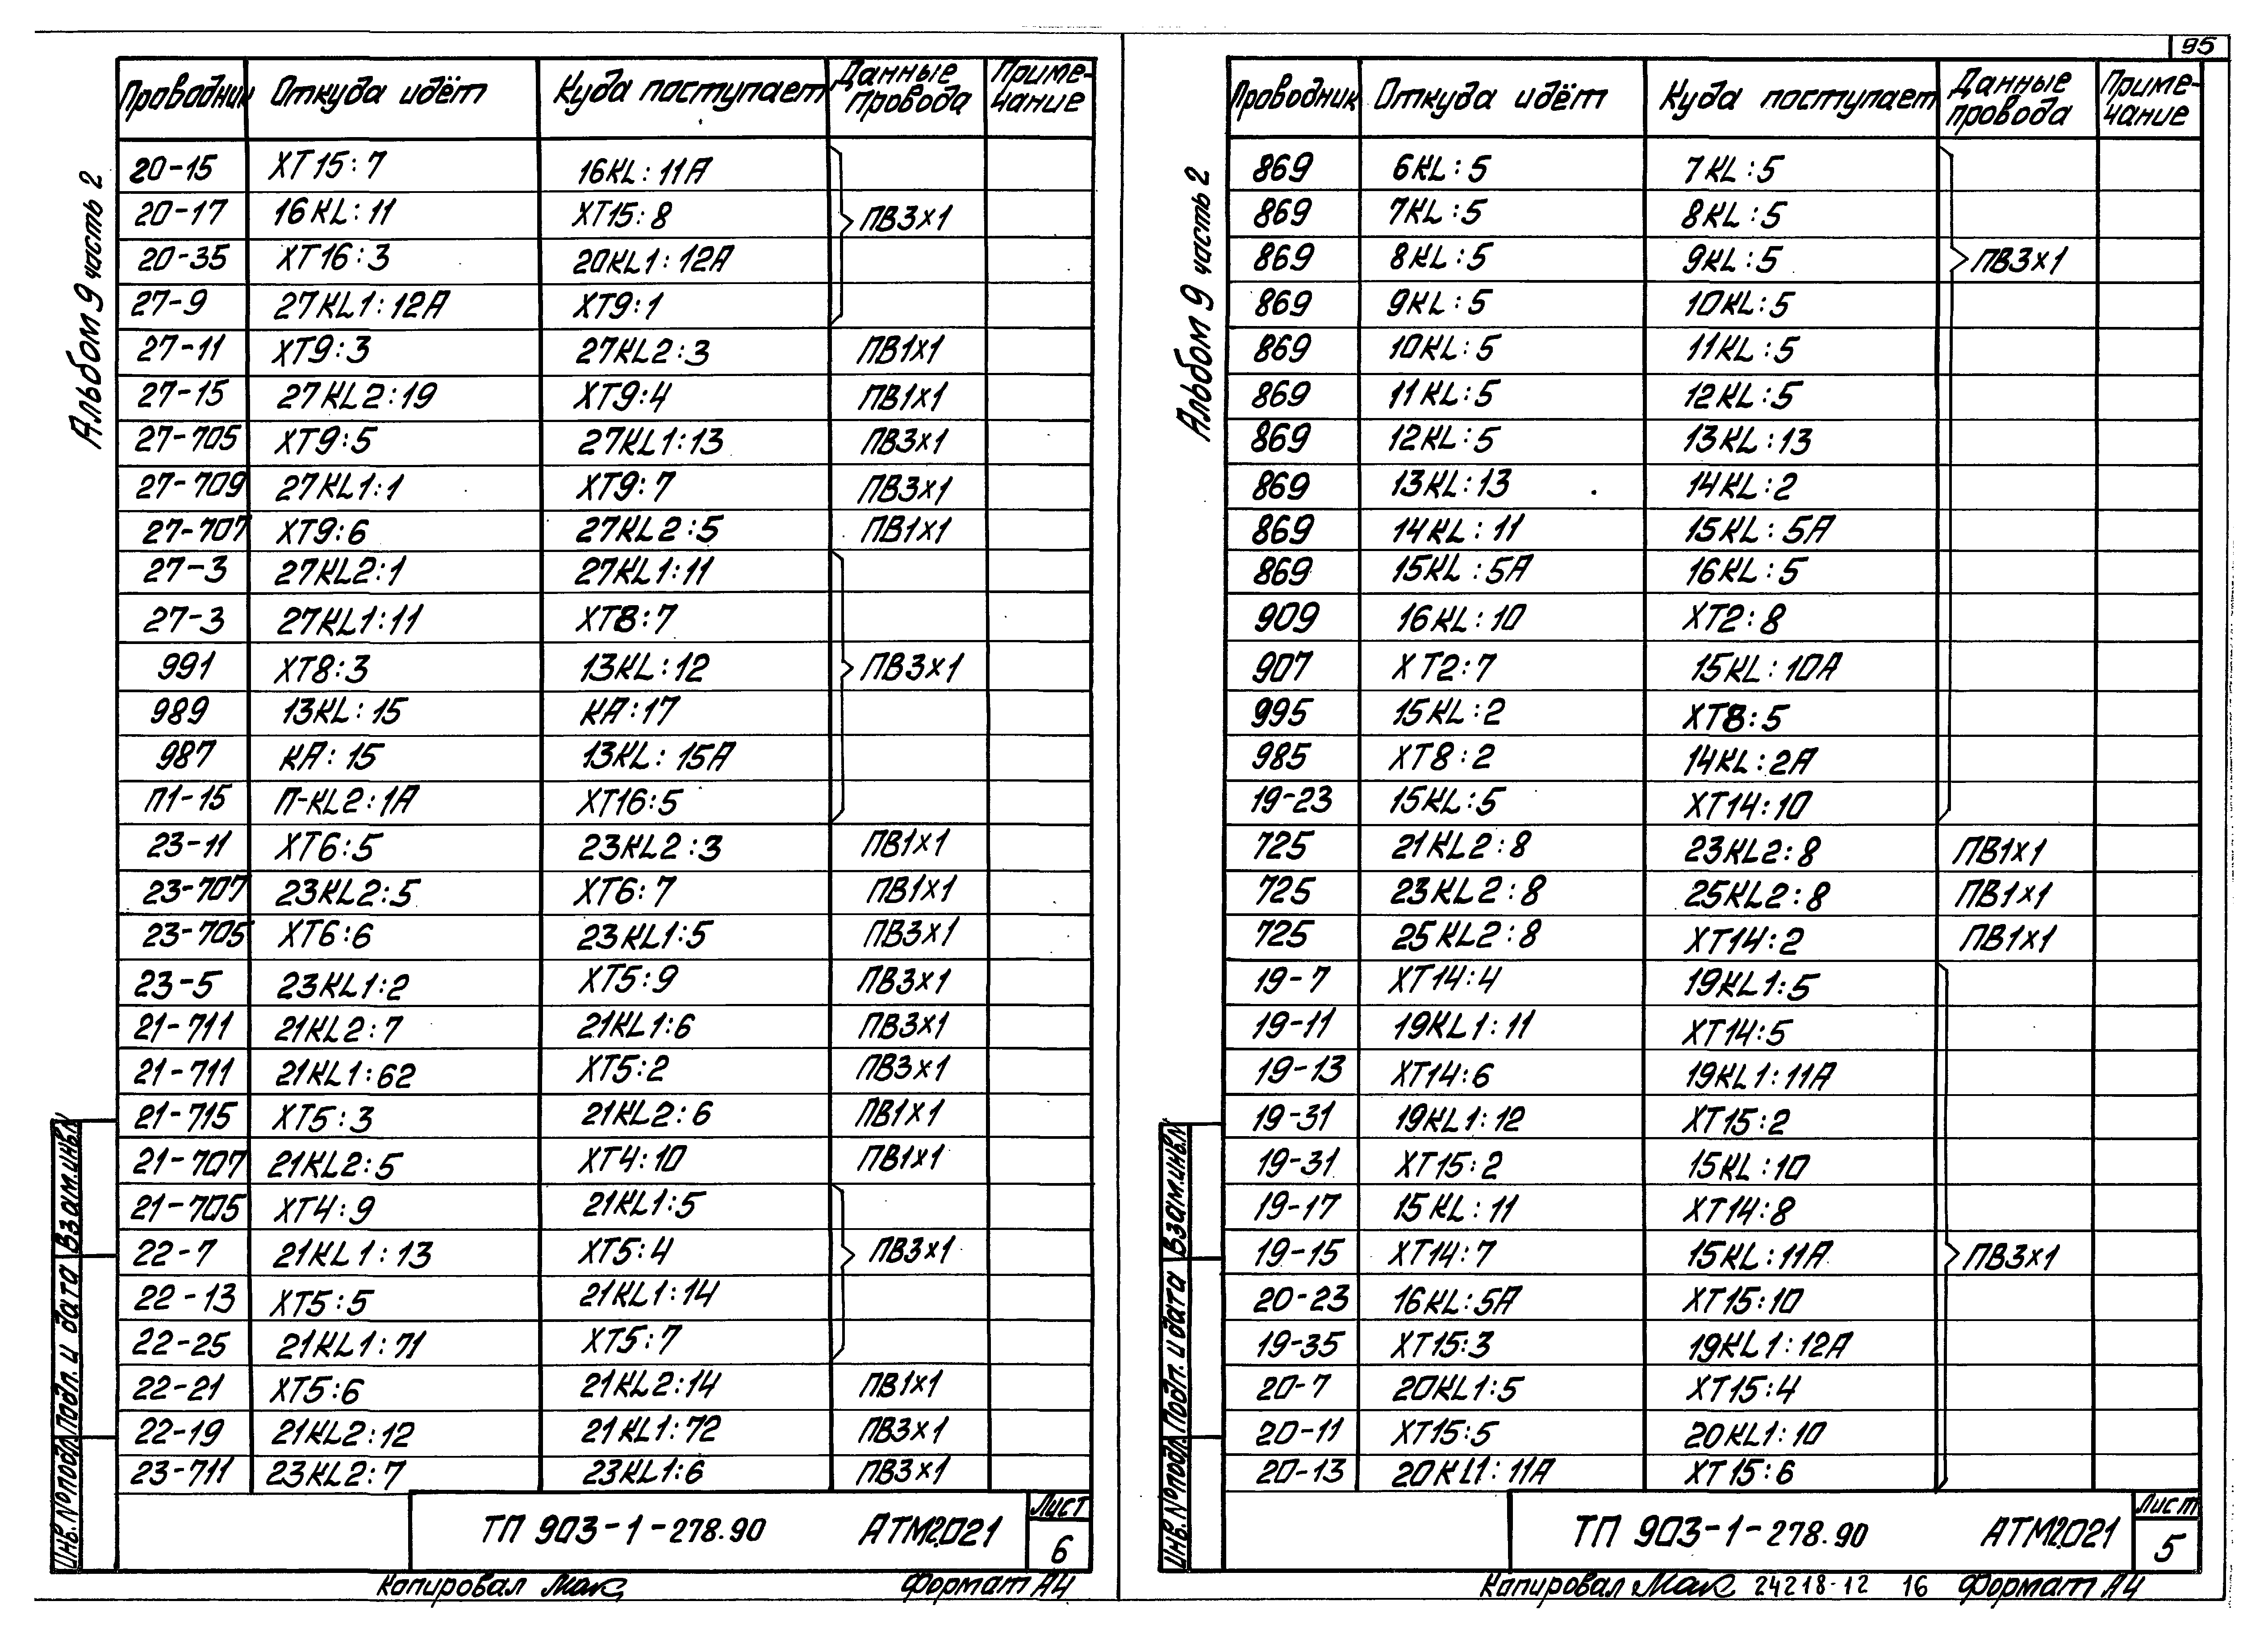 95
Альбом 9 часть 2
Проводник Откуда идёт Куда поступает Данные провода Приме-чание
20-15 ХТ15:7 16KL:11А
20-17 16KL:11 ХТ15:8 ПВ3х1
20-35 ХТ16:3 20KL1:12А
27-9 27KL1:12А ХТ9:1
27-11 ХТ9:3 27KL2:3 ПВ1х1
27-15 27KL2:19 ХТ9:4 ПВ1х1
27-705 ХТ9:5 27KL1:13 ПВ3х1
27-709 27KL1:1 ХТ9:7 ПВ3х1
27-707 ХТ9:6 27KL2:5 ПВ1х1
27-3 27KL2:1 27KL1:11
27-3 27KL1:11 ХТ8:7
991 ХТ8:3 13KL:12 ПВ3х1
989 13KL:15 КА:17
987 КА:15 13KL:15А
П1-15 П-KL2:1А ХТ16:5
23-11 ХТ6:5 23KL2:3 ПВ1х1
23-707 23KL2:5 ХТ6:7 ПВ1х1
23-705 ХТ6:6 23KL1:5 ПВ3х1
23-5 23KL1:2 ХТ5:9 ПВ3х1
21-711 21KL2:7 21KL1:6 ПВ3х1
21-711 21KL1:62 ХТ5:2 ПВ3х1
21-715 ХТ5:3 21KL2:6 ПВ1х1
21-707 21KL2:5 ХТ4:10 ПВ1х1
21-705 ХТ4:9 21KL1:5
22-7 21KL1:13 ХТ5:4 ПВ3х1
22-13 ХТ5:5 21KL1:14
22-25 21KL1:71 ХТ5:7
22-21 ХТ5:6 21KL2:14 ПВ1х1
22-19 21KL2:12 21KL1:72 ПВ3х1
23-711 23KL2:7 23KL1:6 ПВ3х1
Инв.№подл. Подп. и дата Взам.инв.N
ТП 903-1-278.90 АТМ2.021 Лист 6
Копировал Мак Формат А4
Альбом 9 часть 2
Проводник Откуда идёт Куда поступает Данные провода Приме-чание
869 6KL:5 7KL:5
869 7KL:5 8KL:5
869 8KL:5 9KL:5 ПВ3х1
869 9KL:5 10KL:5
869 10KL:5 11KL:5
869 11KL:5 12KL:5
869 12KL:5 13KL:13
869 13KL:13 14KL:2
869 14KL:11 15KL:5А
869 15KL:5А 16KL:5
909 16KL:10 ХТ2:8
907 ХТ2:7 15KL:10А
995 15KL:2 ХТ8:5
985 ХТ8:2 14KL:2А
19-23 15KL:5 ХТ14:10
725 21KL2:8 23KL2:8 ПВ1х1
725 23KL2:8 25KL2:8 ПВ1х1
725 25KL2:8 ХТ14:2 ПВ1х1
19-7 ХТ14:4 19KL1:5
19-11 19KL1:11 ХТ14:5
19-13 ХТ14:6 19KL1:11А
19-31 19KL1:12 ХТ15:2
19-31 ХТ15:2 15KL:10
19-17 15KL:11 ХТ14:8
19-15 ХТ14:7 15KL:11А ПВ3х1
20-23 16KL:5А ХТ15:10
19-35 ХТ15:3 19KL1:12А
20-7 20KL1:5 ХТ15:4
20-11 ХТ15:5 20KL1:10
20-13 20KL1:11А ХТ15:6
Инв.№подл. Подп. и дата Взам.инв.N
ТП 903-1-278.90 АТМ2.021 Лист 5
Копировал Мак 24218-12 16 Формат А4